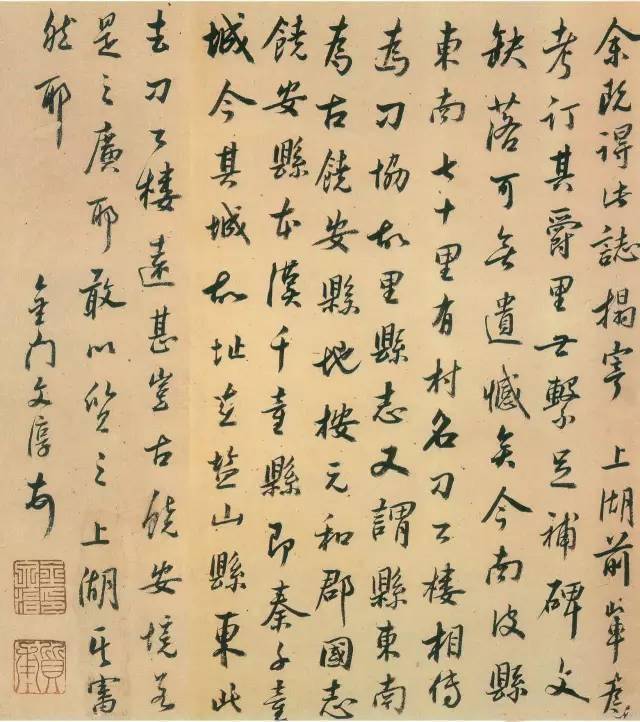 余既得此誌搨寄 上湖前輩爲
考訂其爵里世繫足補碑文
缺落可無遺憾矣今南皮縣
東南七十里有村名刁公樓相傳
爲刁協故里縣志又謂縣東南
爲古饒安縣地按元和郡國志
饒安縣本漢千童縣即秦千童
城今其城故址在盐山縣東北
去刁公樓遠甚豈古饒安境若
是之廣耶敢以質之 上湖其審
然耶
金門文淳